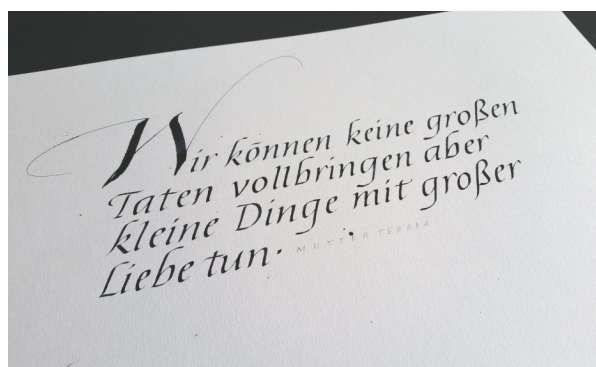 Wir können keine großen
Taten vollbringen aber
kleine Dinge mit großer
Liebe tun. MUTTER TERESA